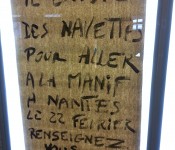 IL EXISTE
DES NAVETTES
POUR ALLER
A LA MANIF
A NANTES
LE 22 FÉVRIER
RENSEIGNEZ
VOUS